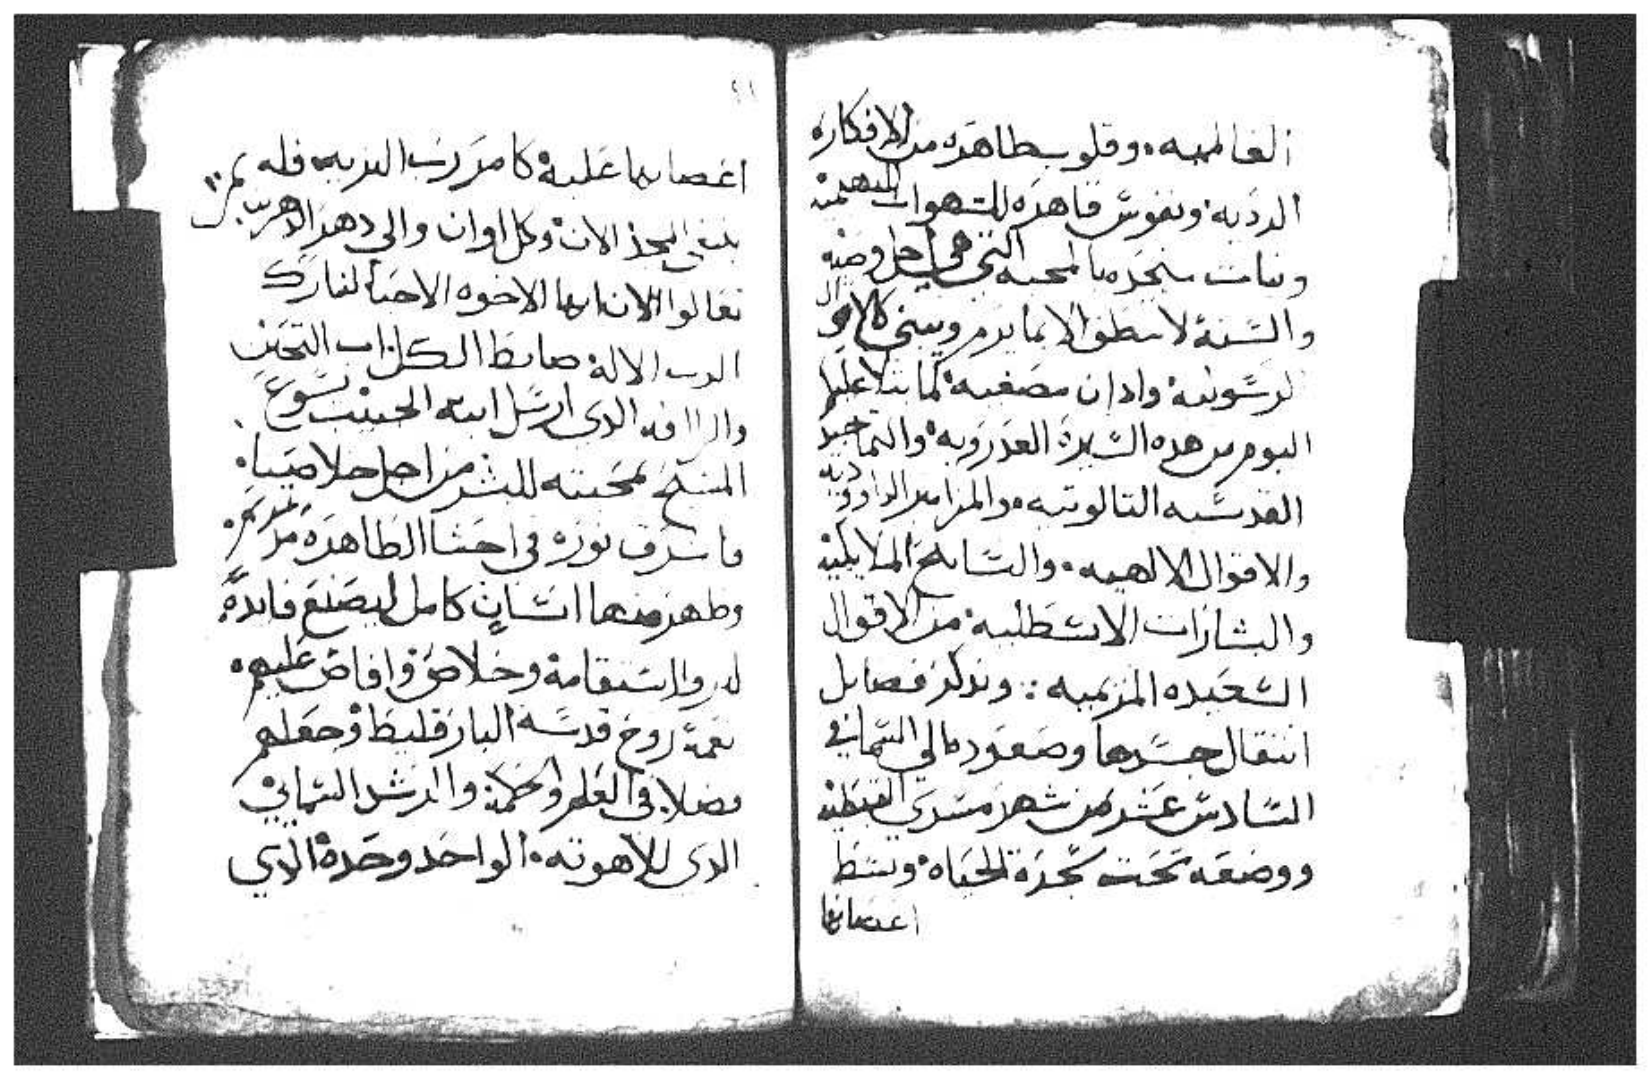 العالميه. وقلوب طاهره من الافكاره
الرديه. ونفوس قاهره للشهوات البهيميه
ونيات متحده بالمحبه التي هي اجل وصيه
والسنة لا تنطق الا بما يرم ويبني كالاقوال
الرسوليه وادان مصغيه لما يتلا عليها
اليوم من هده السيرة العدرويه والتماجيد
القدسيه التالوتيه. والمزامير الداووديه
والاقوال الالهيه. والتسابيح الملايكيه
والبشارات الانسطليه من الاقوال
السعيده المريميه : وندكر فضايل
انتقال جسدها وصعوده الي السما في
السادس عشر من شهر مسري القبطيه
ووضعه تحت شجرة الحياه وتبسط
اعصانها
٢١
اعصانها عليه كامر رب البريه فله
ينبغي المجد الان وكل اوان والي دهر الداهرين
تعالوا الان ايها الاخوه الاحبا لنبارك
الرب الاله ضابط الكل اب التحنن
والرافه الدي ارسل ابنه الحبيب يسوع
المسيح لمحبته للبشر من اجل خلاصنا.
فاشرق نوره في احشا الطاهرة مريم
وظهر منها انسان كامل ليصنع فايدة
واستقامة وخلاص وافاض عليهم
نعمة روح قدسه البارقليط وجعلهم
فضلا في العلم والحكمة والرشد السمايي
الدي للاهوته. الواحد وحده الدي